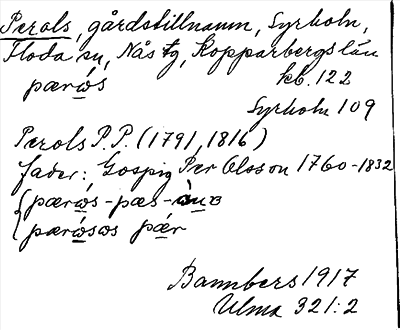 Perols, gårdstillnamn, Syrholn,
Floda sn, Nås tg, Kopparbergs län
pærώ̣s kb. 122
Syrholn 109
Perols P.P. (1791, 1816)
fader: Gospig Per Olsson 1760-1832
pærώ̣s-pæs-
pærώ̣sωs pǽr
Bannbers 1917
Ulma 321:2